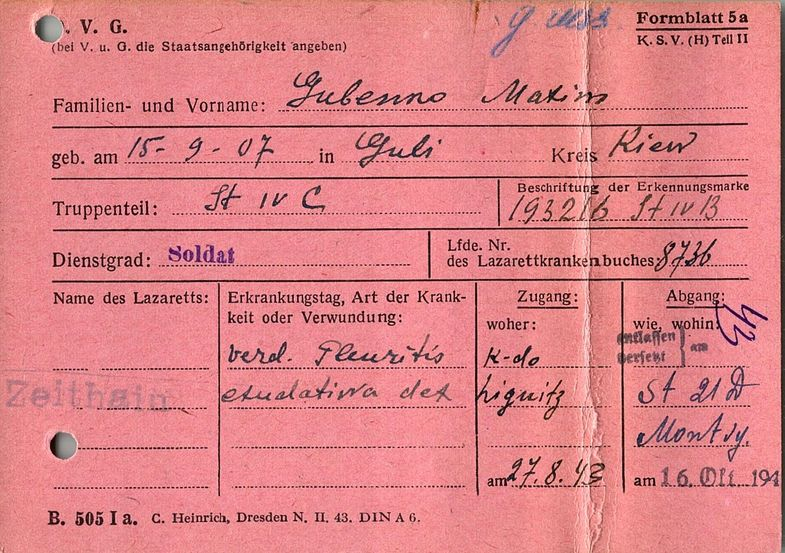 . V. G.
Formblatt 5a
(bei V. u. G. die Staatsangehörigkeit angeben)
K. S. V. (H) Teil II
Familien- und Vorname: Gubenno Maxim
geb. am 15-9-07 in Guli Kreis Kiew
Truppenteil: St IV C
Beschriftung der Erkennungsmarke
193216 St IV B
Dienstgrad: Soldat
Lfde. Nr.
des Lazarettkrankenbuches 8736
Name des Lazaretts:
Zeithain
Erkrankungstag, Art der Krank-
keit oder Verwundung:
verd. Pleuritis
exudativa dex
Zugang:
woher:
K-do
am 27.8.43
Abgang:
wie, wohin:
entlassen
versetzt } am
St 21 D
am 16. Okt. 194
43
B. 505 I a. C. Heinrich, Dresden N. II. 43. DIN A 6.